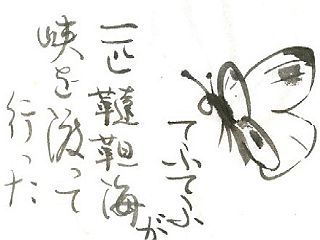 てふてふが
一匹韃靼海
峡を渡って
行った